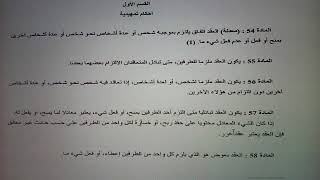 القسم الأول
أحكام تمهيدية
المادة 54 : (معدلة) العقد اتفاق يلتزم بموجبه شخص أو عدة أشخاص نحو شخص أو عدة أشخاص آخرين
بمنح أو فعل أو عدم فعل شيء ما. (1)
المادة 55 : يكون العقد ملزما للطرفين، متى تبادل المتعاقدان الالتزام بعضهما بعضا.
المادة 56 : يكون العقد ملزما لشخص أو لعدة أشخاص، إذا تعاقد فيه شخص نحو شخص أو عدة أشخاص
آخرين دون التزام من هؤلاء الآخرين.
المادة 57 : يكون العقد تبادليا متى التزم أحد الطرفين بمنح، أو فعل شيء، يعتبر معادلا لما يمنح، أو يفعل له.
إذا كان الشيء المعادل محتويا على حظ ربح، أو خسارة لكل واحد من الطرفين على حسب حادث غير محقق
فإن العقد يعتبر عقد غرر.
المادة 58 : العقد بعوض هو الذي يلزم كل واحد من الطرفين إعطاء، أو فعل شيء ما.